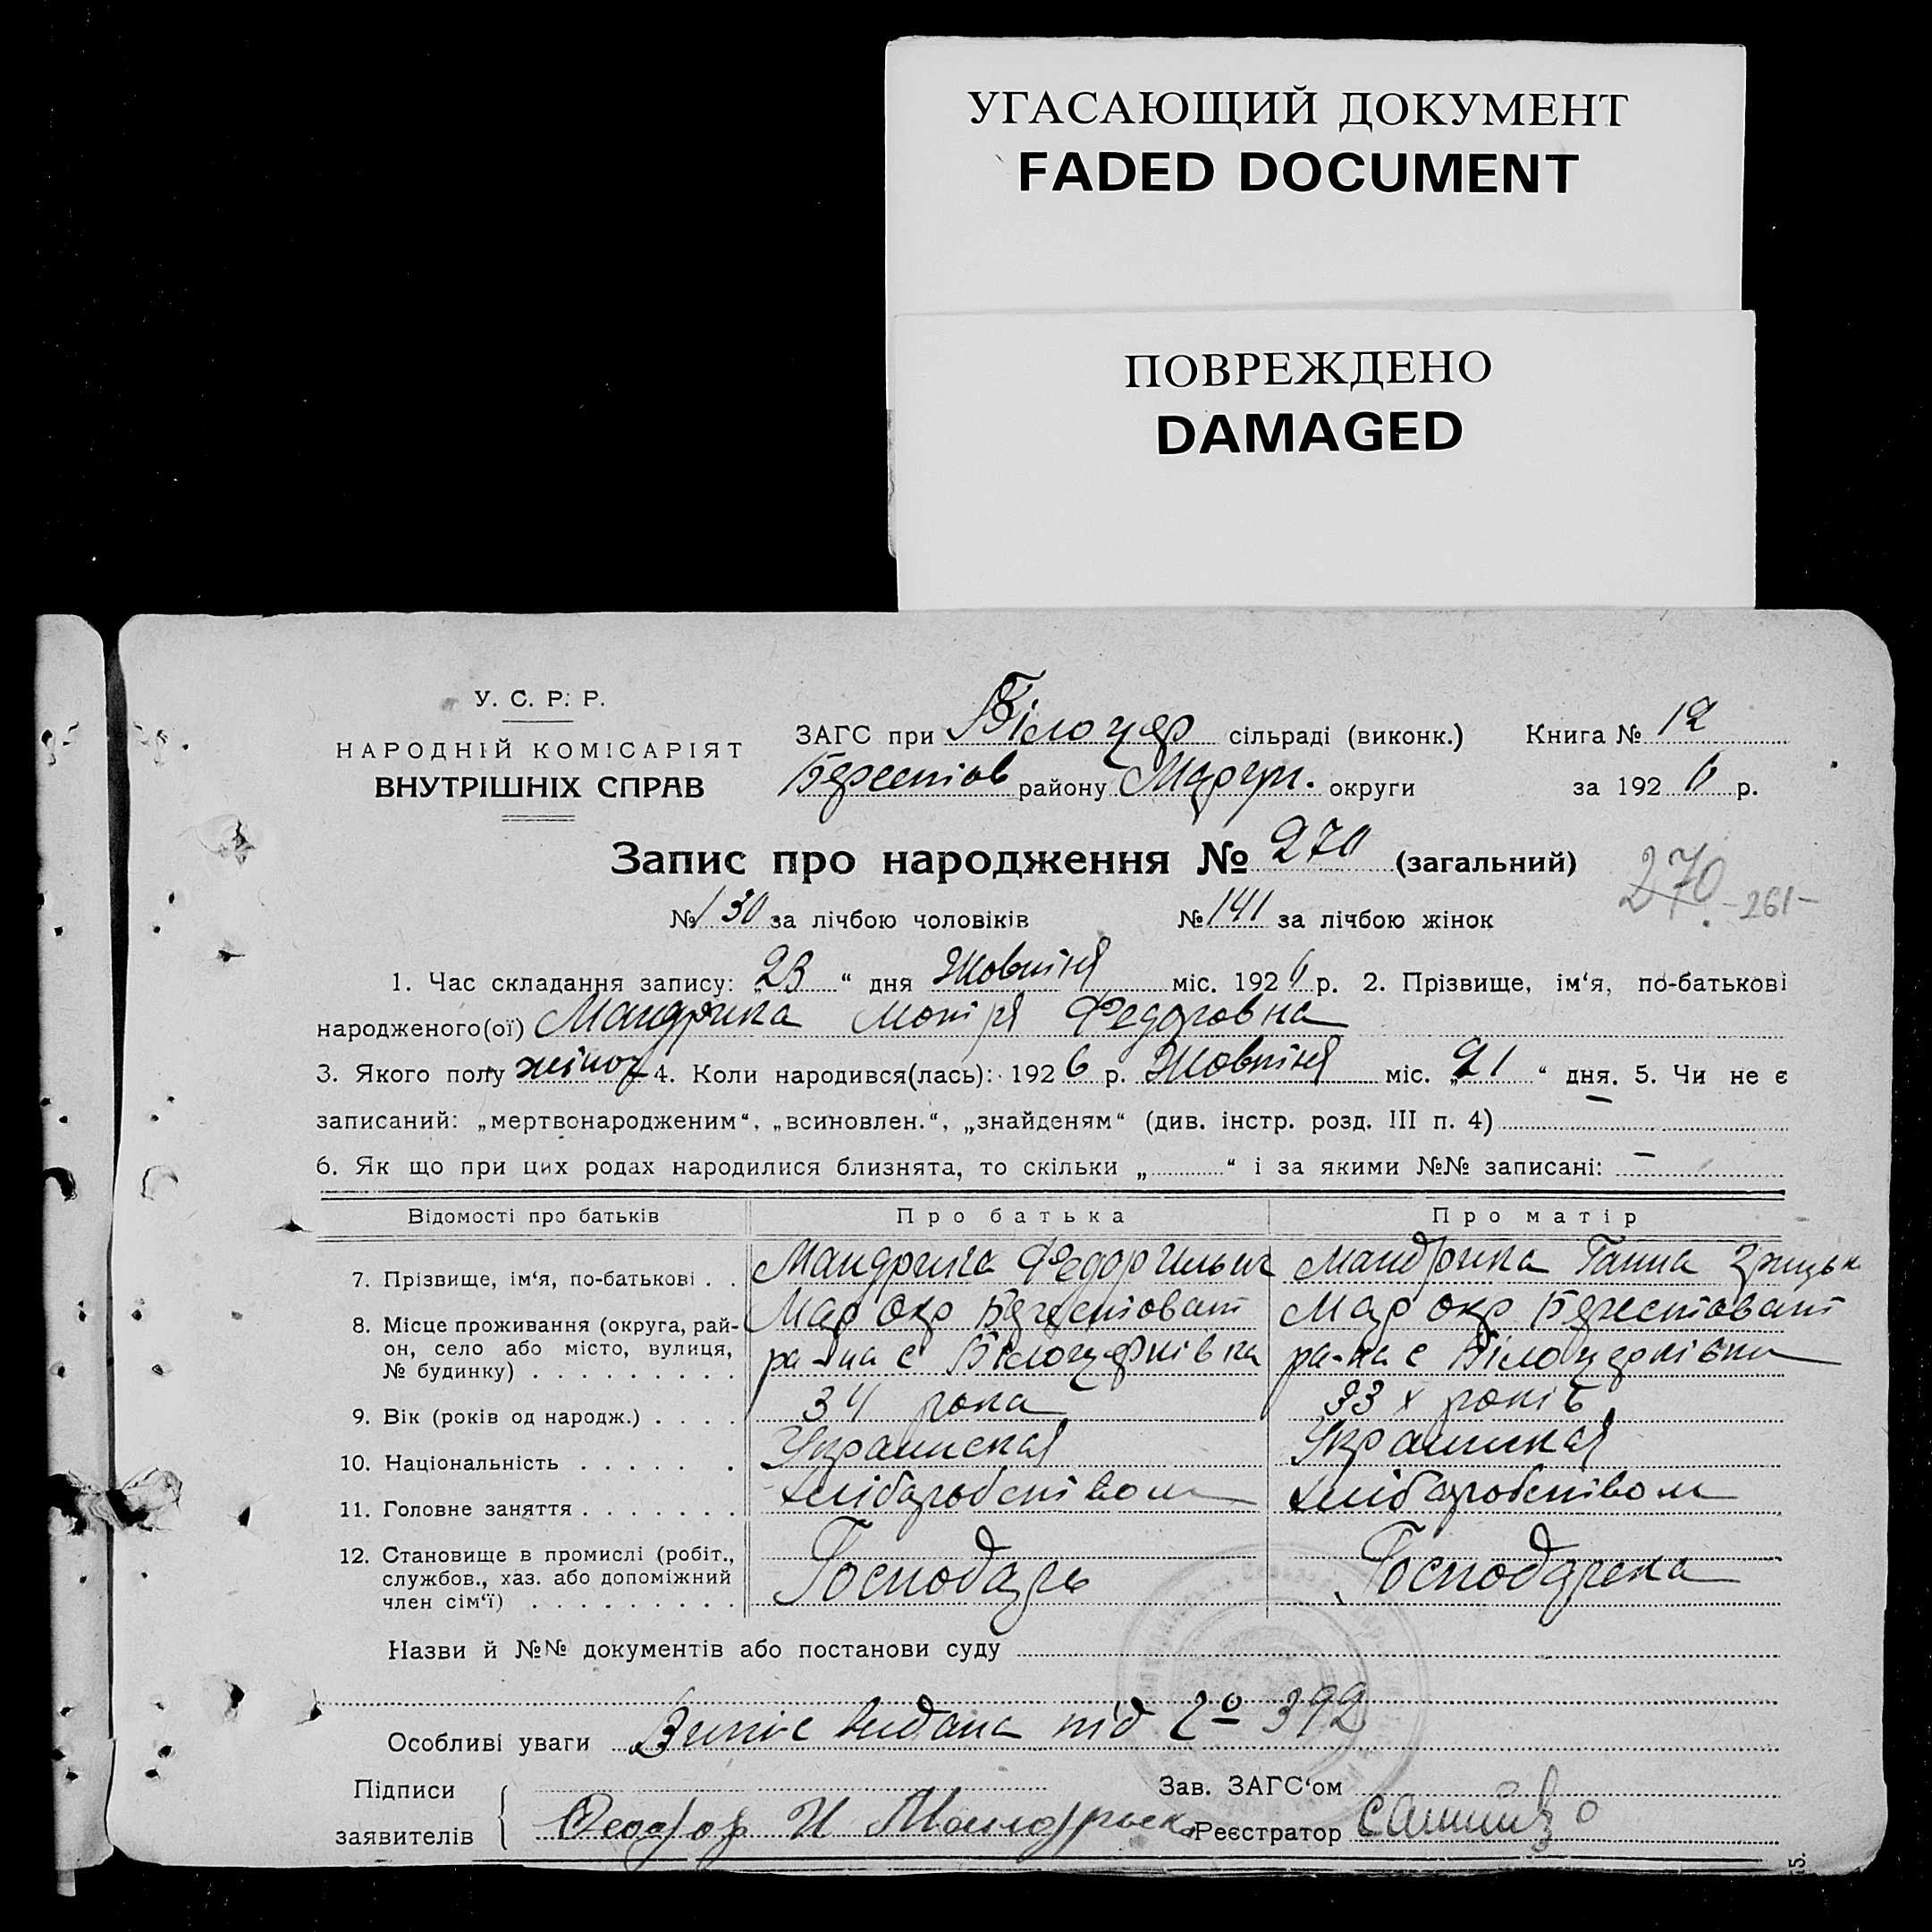 УГАСАЮЩИЙ ДОКУМЕНТ
FADED DOCUMENT
ПОВРЕЖДЕНО
DAMAGED
У. С. Р. Р.
НАРОДНІЙ КОМІСАРІЯТ
ВНУТРІШНІХ СПРАВ
ЗАГС при Білоцер сільраді (виконк.) Книга № 12
Берестов району Маріуп. округи за 1926 р.
Запис про народження № 270 (загальний)
270 -261-
№ 130 за лічбою чоловіків № 141 за лічбою жінок
1. Час складання запису: „23“ дня Жовтня міс. 1926 р. 2. Прізвище, ім‘я, по-батькові
народженого(ої) Мандрика Мотря Федоровна
3. Якого полу жіноч 4. Коли народився(лась): 1926 р. Жовтня міс. „21“ дня. 5. Чи не є
записаний: „мертвонародженим“, „всиновлен.“, „знайденям“ (див. інстр. розд. III п. 4) —
6. Як що при цих родах народилися близнята, то скільки „ “ і за якими №№ записані: —
Відомості про батьків Про батька Про матір
7. Прізвище, ім‘я, по-батькові . . Мандрика Федор Ильич Мандрика Ганна Грицьк
8. Місце проживання (округа, рай- Мар окр Берестоват Мар окр Берестоват
он, село або місто, вулиця, ра-на с Білоцерківка ра-на с Білоцерківка
№ будинку) . . . . . . . . .
9. Вік (років од народж.) . . . . 34 рока 33 х років
10. Національність . . . . . . . Украинская Украинская
11. Головне заняття . . . . . . . хлібаробством хлібаробством
12. Становище в промислі (робіт.,
службов., хаз. або допоміжний Господарь Господарка
член сім‘ї) . . . . . . . . .
Назви й №№ документів або постанови суду
Особливі уваги Випис видана під № 392
Підписи Зав. ЗАГС‘ом
заявителів Феодор И Мандрыка Реєстратор